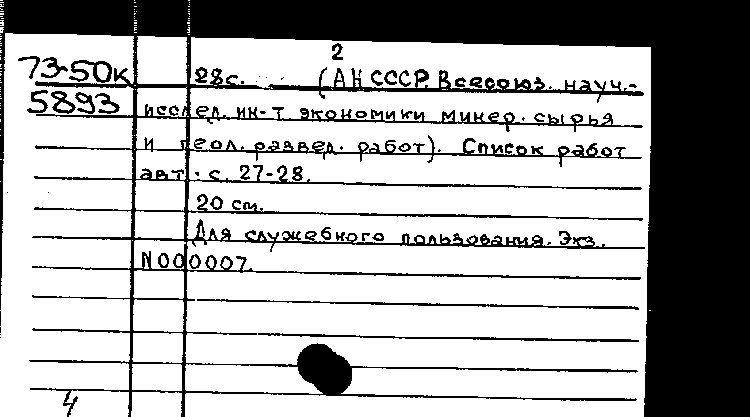 2
73-50к 28с. (АН СССР. Всесоюз. науч.-
5893 исслед. ин-т экономики минер. сырья
и геол. развед. работ). Список работ
авт. с. 27-28.
20 см.
Для служебного пользования. Экз.
N000007.
4